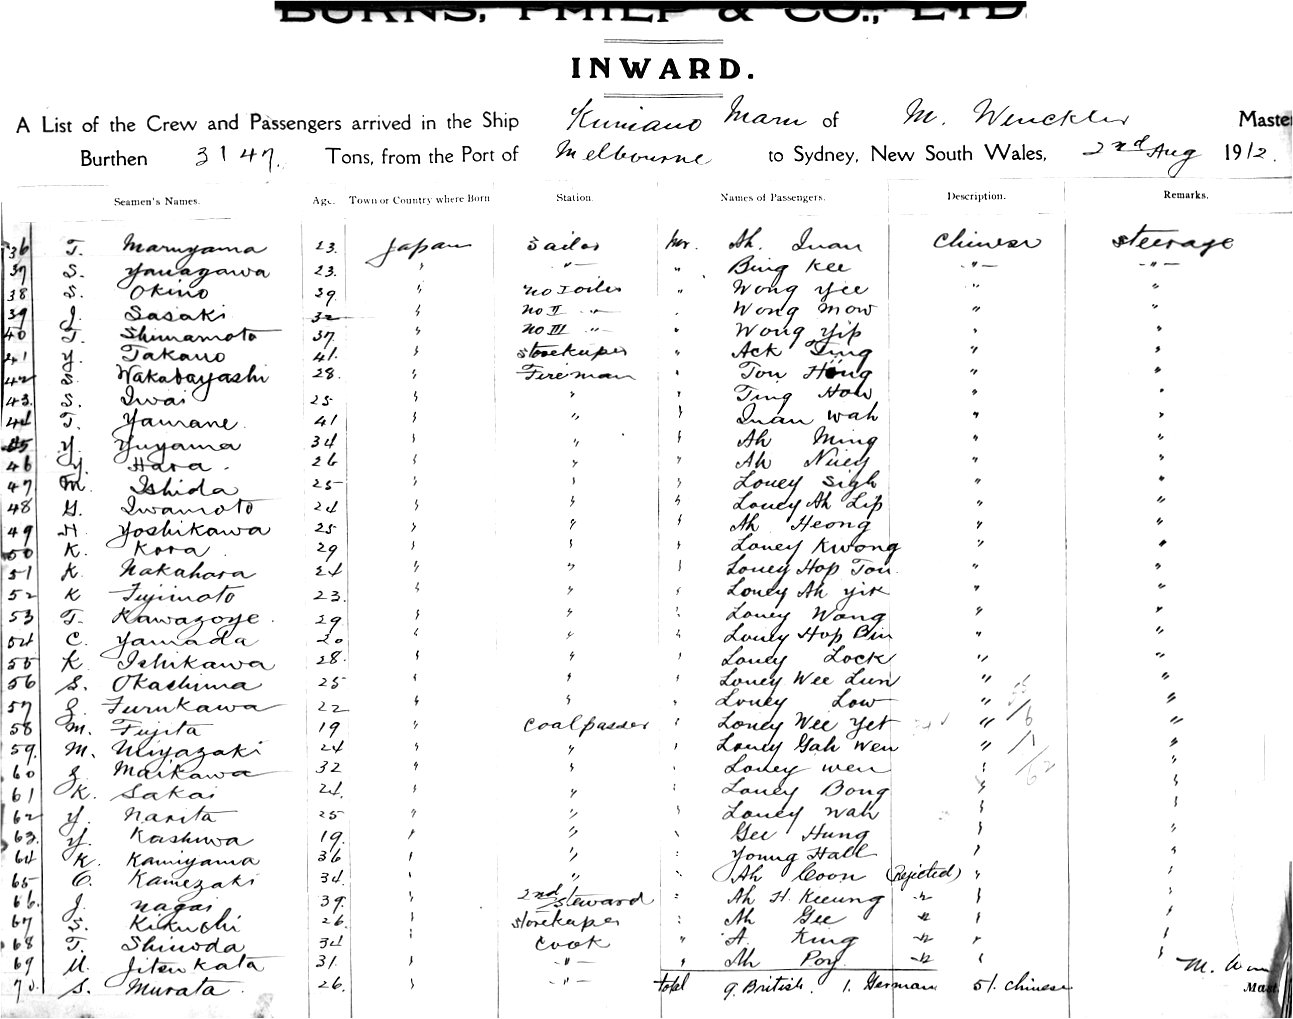 BURNS, PHILP & CO., LTD
INWARD.
A List of the Crew and Passengers arrived in the Ship Kumano Maru of M. Winckler Master
Burthen 3147. Tons, from the Port of Melbourne to Sydney, New South Wales, 2nd Aug 1912.
Seamen's Names. Age. Town or Country where Born Station. Names of Passengers. Description. Remarks.
36 T. Maruyama 23. Japan Sailor Mr. Ah. Quan Chinese Steerage
37 S. Yanagawa 23. " " " Bing Kee " "
38 S. Okino 39. " No I oiler " Wong Yee " "
39 J. Sasaki 32 " No II " " Wong Mow " "
40 T. Shimamoto 37. " No III " " Wong Yip " "
41 Y. Takano 41. " Storekeeper " Ack Ting " "
42 S. Wakabayashi 28. " Fireman " Tou Hong " "
43. S. Iwai 25 " " " Ting How " "
44 T. Yamane. 41 " " " Quan Wah " "
45 Y. Yuyama 34 " " " Ah Ming " "
46 Y. Hara. 26 " " " Ah Nuey " "
47 M. Ishida 25 " " " Louey Sigh " "
48 G. Iwamoto 24 " " " Louey Ah Lip " "
49 H. Yoshikawa 25 " " " Ah Heong " "
50 K. Kora 29 " " " Louey Kwong " "
51 K. Nakahara 24 " " " Louey Hop Tou " "
52 K Fujimoto 23. " " " Louey Ah Yik " "
53 T. Kawazoye. 29 " " " Louey Wong " "
54 C. Yamada 20 " " " Louey Hop Bin " "
55 K. Ishikawa 28. " " " Louey Lock " "
56 S. Okashima 25 " " " Louey Wee Lun " "
57 Furukawa 22 " " " Louey Low " "
58 M. Fujita 19 " Coalpasser " Louey Wee Yet " "
59. M. Miyazaki 24 " " " Louey Gah Wen " "
60 Maikawa 32 " " " Louey Wen " "
61 K. Sakai 24. " " " Louey Bong " "
62 Y. Narita 25 " " " Louey Wah " "
63. Y. Kashiwa 19. " " " Gee Hung " "
64 K. Kamiyama 36 " " " Young Hall " "
65 O. Kamezaki 34. " " " Ah Coon (Rejected) " "
66. J. Nagai 39. " 2nd Steward " Ah H. Keeung " " "
67 S. Kikuchi 26. " Storekeeper " Ah Gee " " "
68 T. Shinoda 34 " Cook " A. King " " "
69 U. Jitenkata 31. " " " Ah Poy. " " " M.
70. S. Murata. 26. " " total 9. British. 1. German 51. Chinese Mast